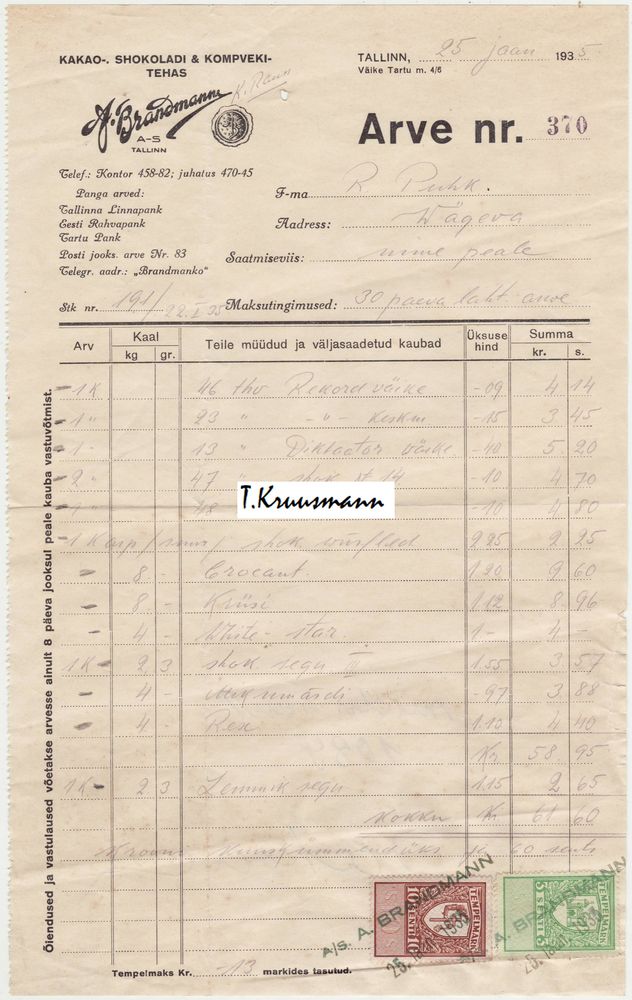 KAKAO-. SHOKOLADI & KOMPVEKI-
TEHAS
A. Brandmann
A-S
TALLINN
TALLINN, 25 jaan 1935
Väike Tartu m. 4/6
Arve nr. 370
Telef.: Kontor 458-82; juhatus 470-45
Panga arved:
Tallinna Linnapank
Eesti Rahvapank
Tartu Pank
Posti jooks. arve Nr. 83
Telegr. aadr.: „Brandmanko"
F-ma R. Puhk.
Aadress: Wägeva
Saatmiseviis: peale
Stk nr. 191/22.I 35 Maksutingimused: 30 päeva laht. arve
Arv Kaal Teile müüdud ja väljasaadetud kaubad Üksuse hind Summa
kg gr. kr. s.
1 K 46 thv Rekord väike -09 4 14
1 " 23 " -"- keskm -15 3 45
1 - 13 " Diktaator väike -40 5 20
2 " 47 " shok 14 -10 4 70
1 " 48 -10 4 80
T.Kruusmann
1 Karp shok 2.25 2 25
8 - Crocant 1.20 9 60
8 - Krüsi 1.12 8 96
4 - White-star 1- 4 -
1K 2 3 shok segu III 1.55 3 57
4 - -97 3 88
4 - Rex 1.10 4 40
Kr 58 95
1K 2 3 Lemmik segu 1.15 2 65
Kokku Kr 61 60
Krooni kuuskümmend üks ja 60 senti
Õiendused ja vastulaused võetakse arvesse ainult 8 päeva jooksul peale kauba vastuvõtmist.
TEMPELMARK
10 SENTI 10
TEMPELMARK
3 SENTI 3
A/S. A. BRANDMANN
25. JAN. 1935
A/S. A. BRANDMANN
25. JAN. 1935
Tempelmaks Kr. -13 markides tasutud.